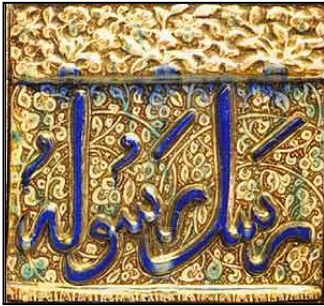 رسل رسوله